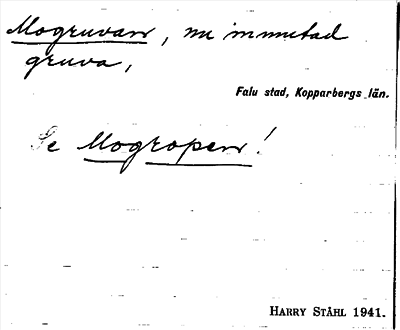 Mogruvan, nu inmutad
gruva,
Falu stad, Kopparbergs län.
Se Mogropen!
HARRY STÅHL 1941.